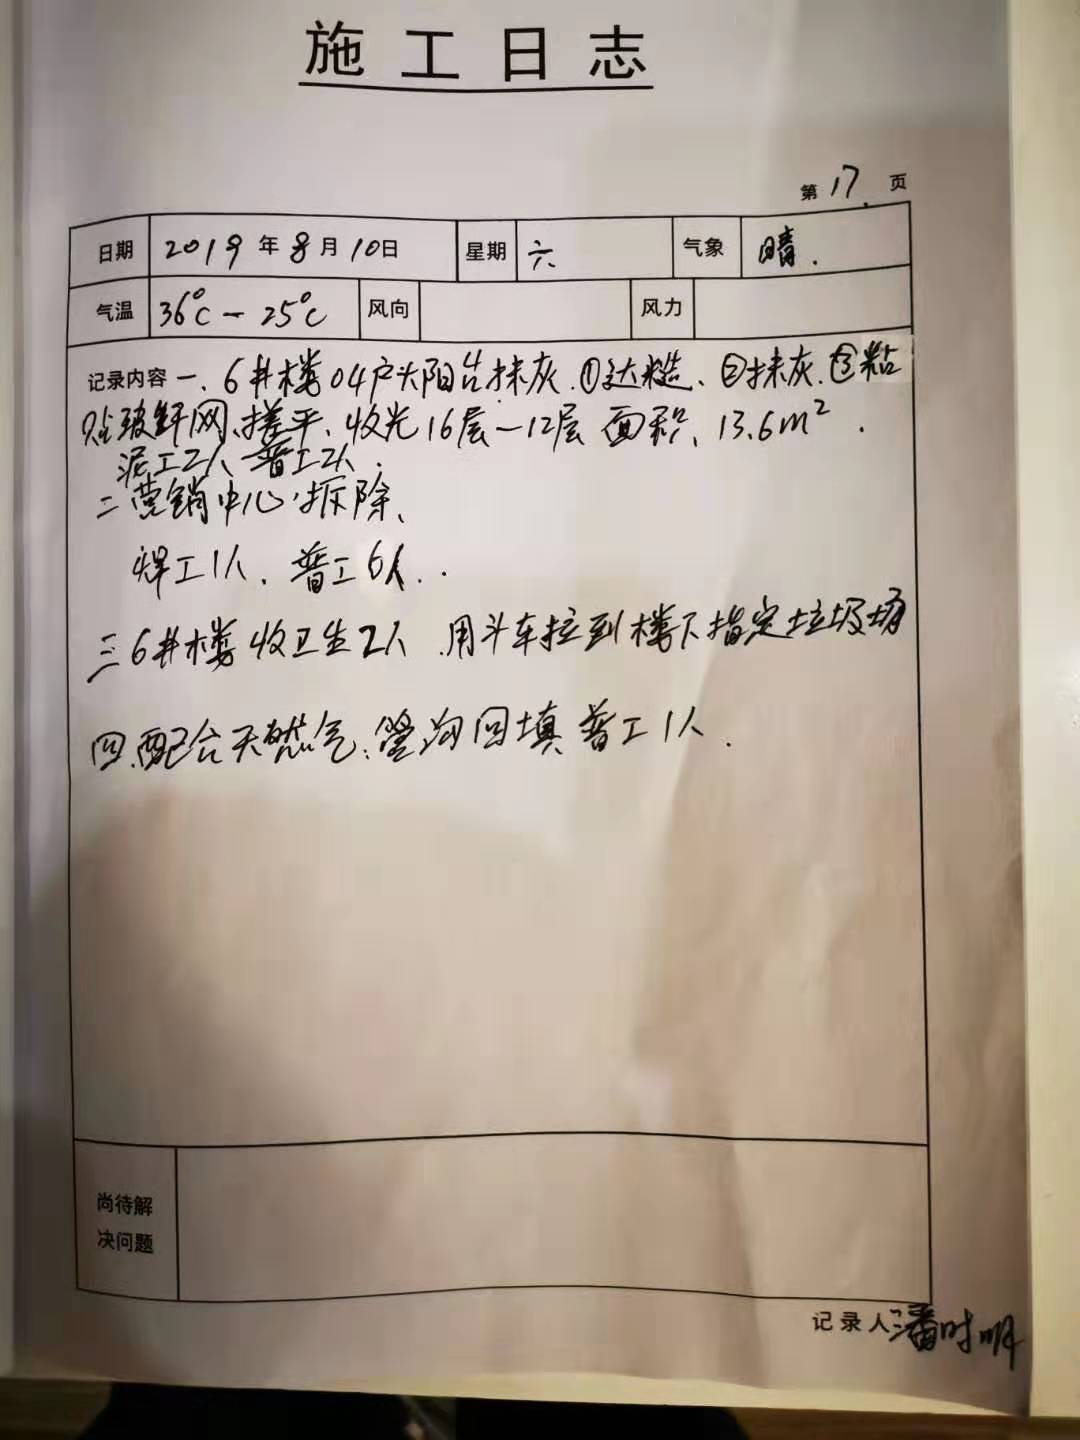 施工日志
第17.页
日期 2019年8月10日 星期 六 气象 晴.
气温 36℃-25℃ 风向 风力
记录内容 一、6#楼04户大阳台抹灰.①达糙、②抹灰.③粘
贴玻纤网、搓平、收光16层-12层 面积、13.6m².
泥工2人 普工2人.
二营销中心拆除、
焊工1人、普工6人..
三6#楼收卫生2人.用斗车拉到楼下指定垃圾场
四.配合天然气、管沟回填普工1人.
尚待解
决问题
记录人 潘时明